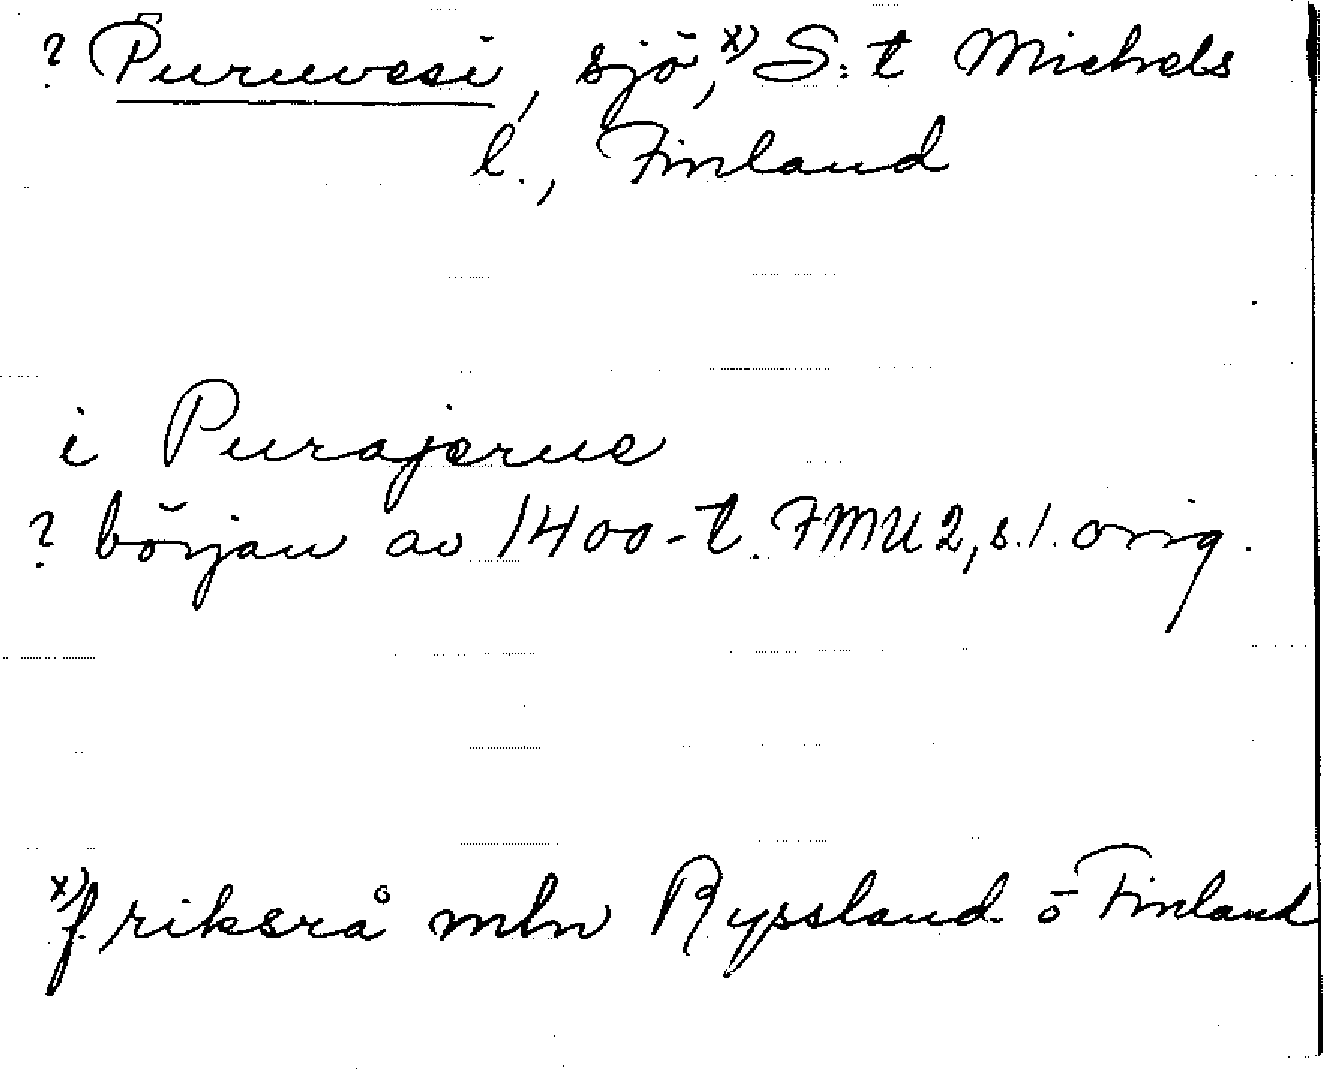 ? Puruvesi, sjö,ˣ⁾ S:t Michels
l., Finland
i Purajerue
? början av 1400-t. FMU 2, s. 1. orig.
ˣ⁾ f riksrå mln Ryssland o Finland